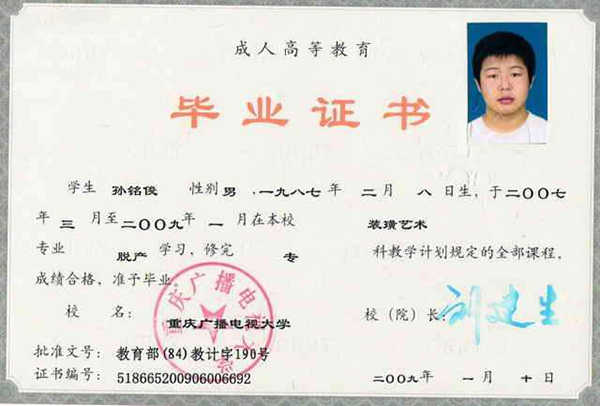 成人高等教育
毕业证书
学生 孙铭俊 性别 男 ,一九八七 年 二 月 八 日生,于 二〇〇七
年 三 月至 二〇〇九 年 一 月在本校 装璜艺术
专业 脱产 学习,修完 专 科教学计划规定的全部课程,
成绩合格,准予毕业。
校 名: 重庆广播电视大学 校(院)长: 刘建生
批准文号: 教育部(84)教计字190号
证书编号: 518665200906006692 二〇〇九 年 一 月 十 日
重庆广播电视大学